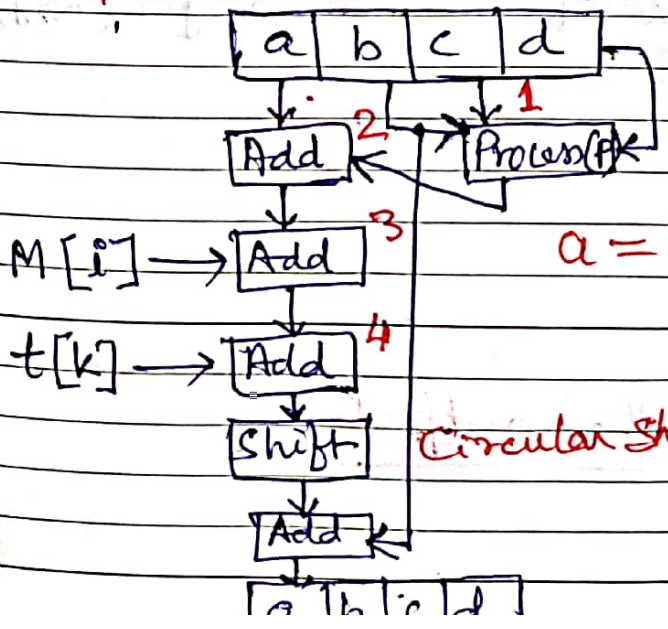 a b c d
1
2
Add Process(P)
3
M[i] Add
a =
4
t[k] Add
Shift Circular Sh
Add
a b c d